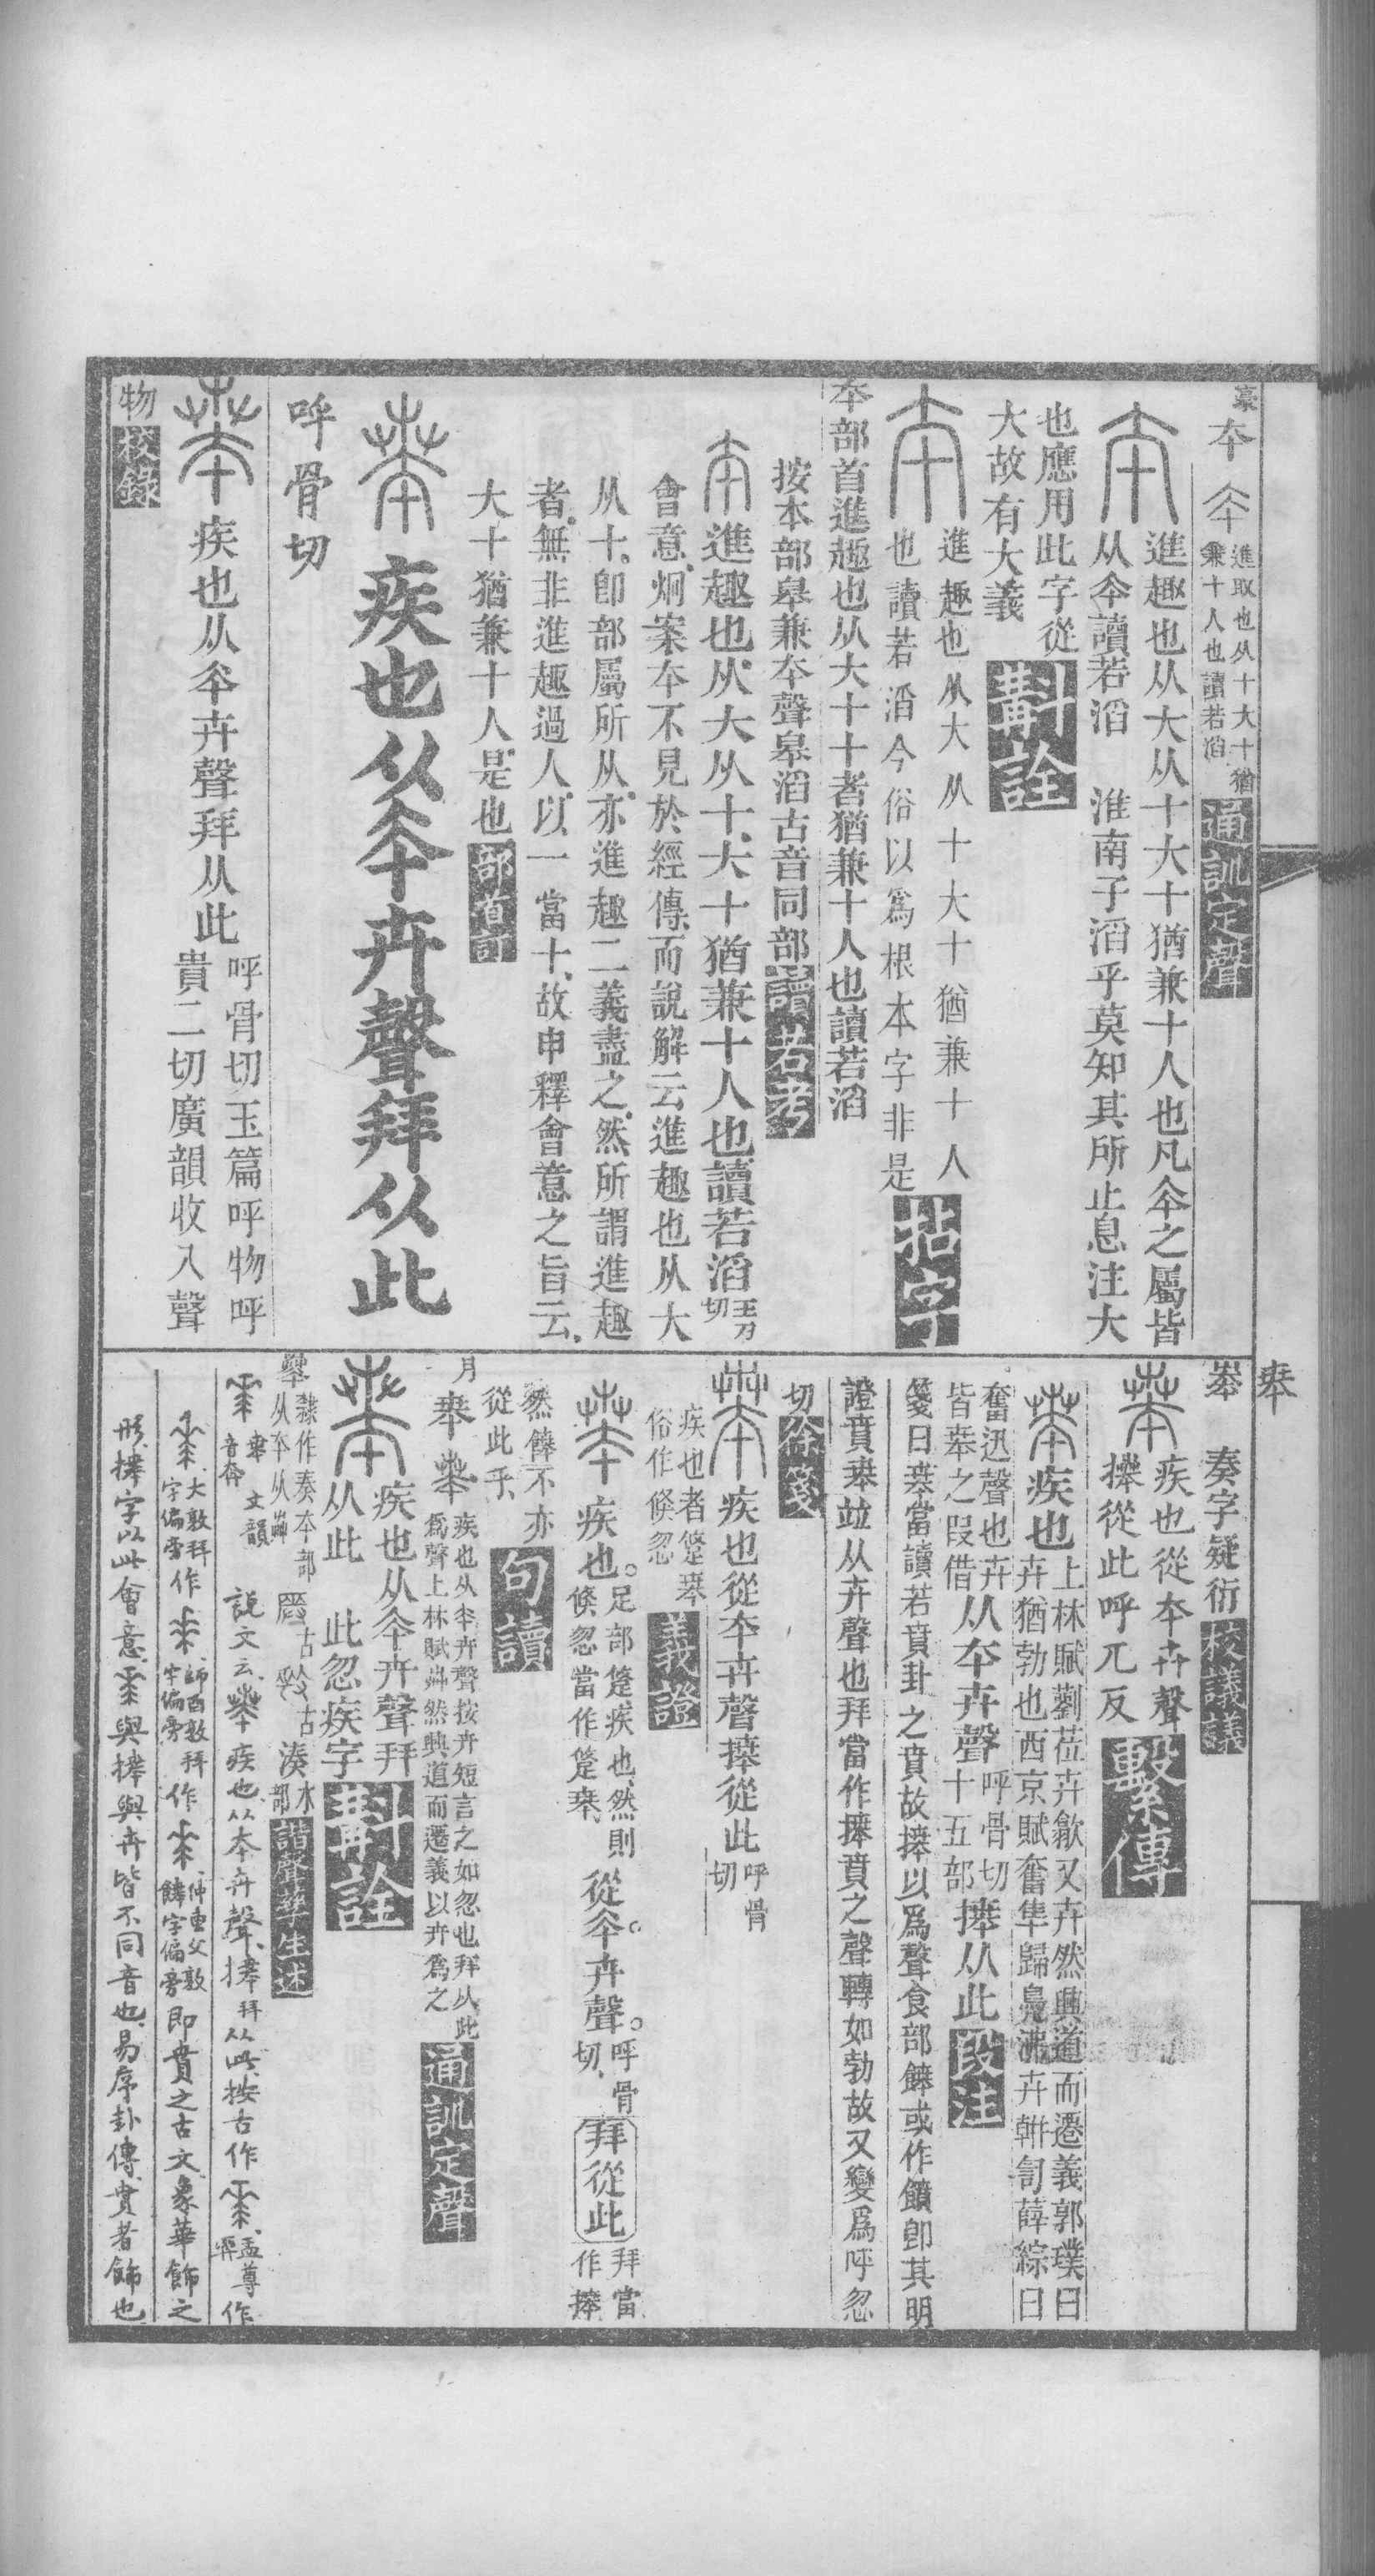 豪 夲 夲 進取也从十大十猶
兼十人也讀若滔 通訓定聲
夲 進趣也从大从十大十猶兼十人也凡夲之屬皆
从夲讀若滔 淮南子滔乎莫知其所止息注大
也應用此字從
大故有大義 斠詮
夲 進趣也从大从十大十猶兼十人
也讀若滔今俗以爲根本字非是 拈字
夲部首進趣也从大十十者猶兼十人也讀若滔
按本部皋兼夲聲皋滔古音同部 讀若考
夲 進趣也从大从十大十猶兼十人也讀若滔 土刀切
會意炯案夲不見於經傳而說解云進趣也从大
从十卽部屬所从亦進趣二義盡之然所謂進趣
者無非進趣過人以一當十故申釋會意之旨云
大十猶兼十人是也 部首訂
𠦪 疾也从夲卉聲拜从此
呼骨切
𠦪 疾也从夲卉聲拜从此 呼骨切玉篇呼物呼
貴二切廣韻收入聲
物 校錄
𠦪
𠦪 奏字疑衍 校議議
𠦪 疾也從夲卉聲
𢷎從此呼兀反 繫傳
𠦪 疾也 上林賦藰莅卉歙又卉然興道而遷義郭璞曰
卉猶勃也西京賦奮隼歸鳧沸卉軿訇薛綜曰
奮迅聲也卉
皆𠦪之叚借 从夲卉聲 呼骨切
十五部 𢷎从此 段注
箋曰𠦪當讀若賁卦之賁故𢷎以爲聲食部餴或作饙卽其明
證賁𠦪竝从卉聲也拜當作𢷎賁之聲轉如勃故又變爲呼忽
切 徐箋
𠦪 疾也從夲卉聲𢷎從此 呼骨切
疾也者
俗作倐忽 義證
𠦪 疾也 足部 疾也然則
倐忽當作 𠦪 從夲卉聲 呼骨切 拜從此 拜當
作𢷎
然餴不亦
從此乎 句讀
月 𠦪 𠦪 疾也从夲卉聲按卉短言之如忽也拜从此
爲聲上林賦 然興道而遷義以卉爲之 通訓定聲
𠦪 疾也从夲卉聲拜
从此 此忽疾字 斠詮
隸作奏夲部
从夲从 古 古 湊水部 諧聲孳生述
音奔 文韻 說文云𠦪疾也从夲卉聲𢷎拜从此按古作 盂尊作
大敦拜
字偏旁作 師酉敦拜
字偏旁作 仲 父敦
餴字偏旁 卽賁之古文象華飾之
形𢷎字以此會意 與𢷎與卉皆不同音也易序卦傳賁者飾也